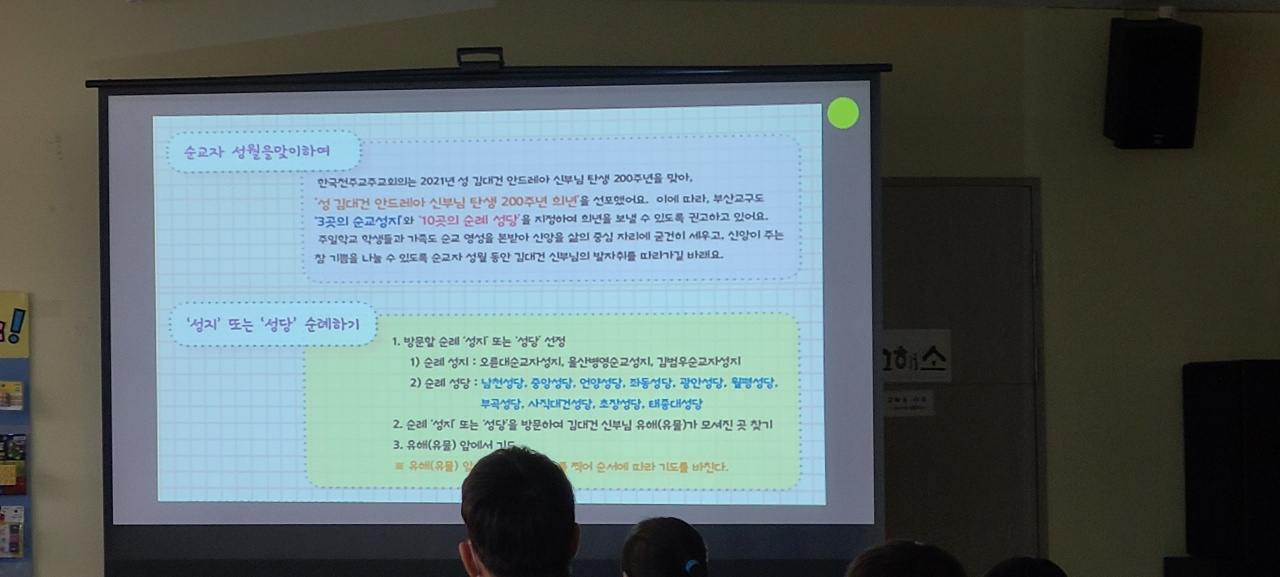 순교자 성월을맞이하여
한국천주교주교회의는 2021년 성 김대건 안드레아 신부님 탄생 200주년을 맞아,
'성 김대건 안드레아 신부님 탄생 200주년 희년'을 선포했어요. 이에 따라, 부산교구도
'3곳의 순교성지'와 '10곳의 순례 성당'을 지정하여 희년을 보낼 수 있도록 권고하고 있어요.
주일학교 학생들과 가족도 순교 영성을 본받아 신앙을 삶의 중심 자리에 굳건히 세우고, 신앙이 주는
참 기쁨을 나눌 수 있도록 순교자 성월 동안 김대건 신부님의 발자취를 따라가길 바래요.
'성지' 또는 '성당' 순례하기
1. 방문할 순례 '성지' 또는 '성당' 선정
1) 순례 성지 : 오륜대순교자성지, 울산병영순교성지, 김범우순교자성지
2) 순례 성당 : 남천성당, 중앙성당, 언양성당, 좌동성당, 광안성당, 월평성당,
부곡성당, 사직대건성당, 초장성당, 태종대성당
2. 순례 '성지' 또는 '성당'을 방문하여 김대건 신부님 유해(유물)가 모셔진 곳 찾기
3. 유해(유물) 앞에서 기도
※ 유해(유물) 찍어 순서에 따라 기도를 바친다.
해소